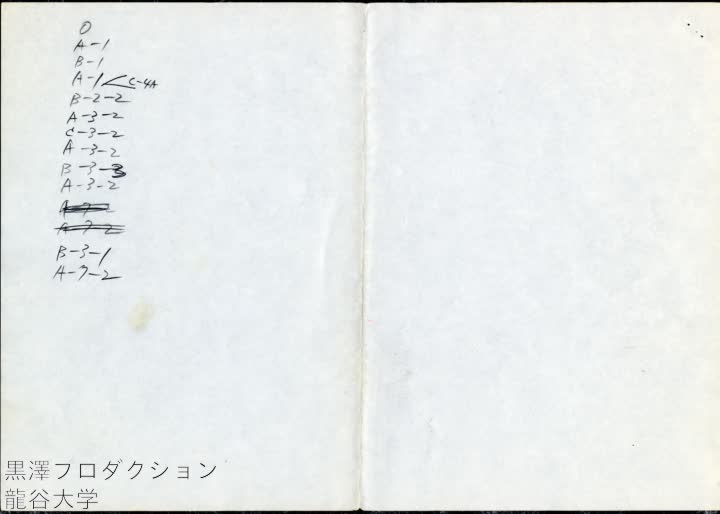 0
A-1
B-1
A-1<C-4A
B-2-2
A-3-2
C-3-2
A-3-2
B-3-3
A-3-2
B-3-1
A-3-2
黒澤フロダクション
龍谷大学